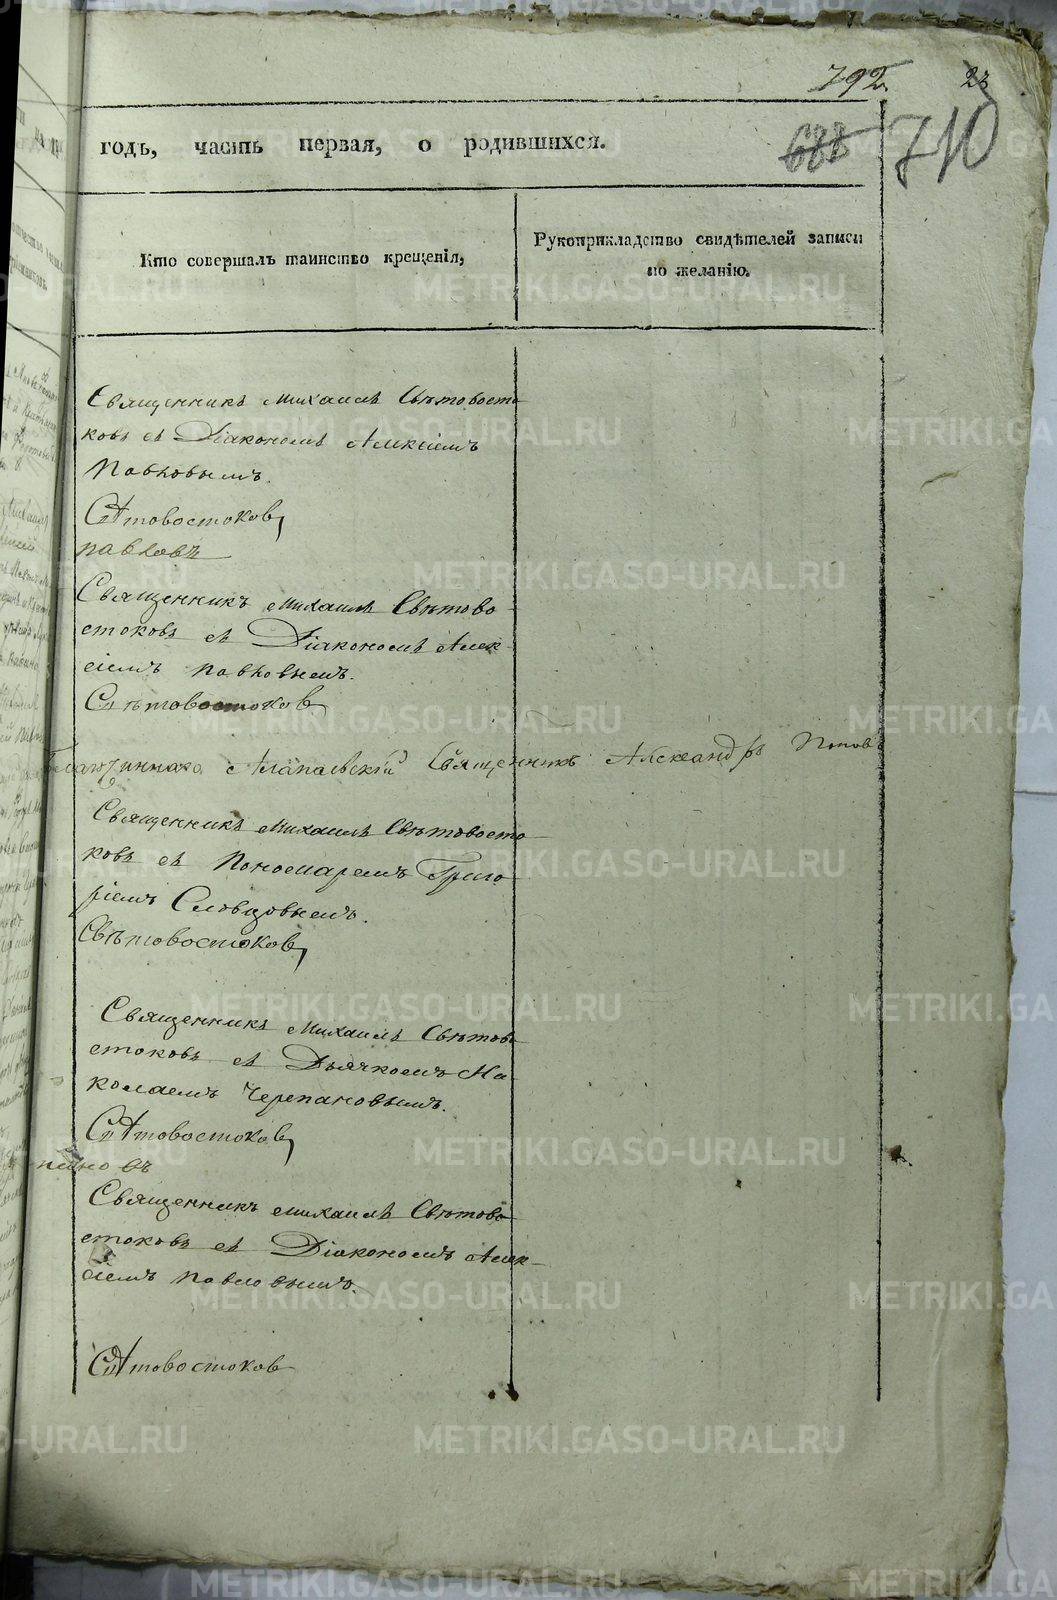 792. 23
688 710
годъ, часть первая, о родившихся.
Кто совершалъ таинство крещенія,
Рукоприкладство свидѣтелей записи
по желанію.
Священникъ Михаилъ Свѣтовосто
ковъ съ Діакономъ Алексіемъ
Павловымъ.
Свѣтовостоковъ
Павловъ
Священникъ Михаилъ Свѣтово
стоковъ съ Діакономъ Алек
сіемъ Павловымъ.
Свѣтовостоковъ
Алапаевскій Священникъ Александръ Поповъ
Священникъ Михаилъ Свѣтовосто
ковъ съ Пономаремъ Григо
ріемъ Словцовымъ.
Свѣтовостоковъ
Священникъ Михаилъ Свѣтово
стоковъ съ Дьячкомъ Ни
колаемъ Черепановымъ.
Свѣтовостоковъ
Священникъ Михаилъ Свѣтово
стоковъ съ Діакономъ Алек
сіемъ Павловымъ.
Свѣтовостоковъ
METRIKI.GASO-URAL.RU